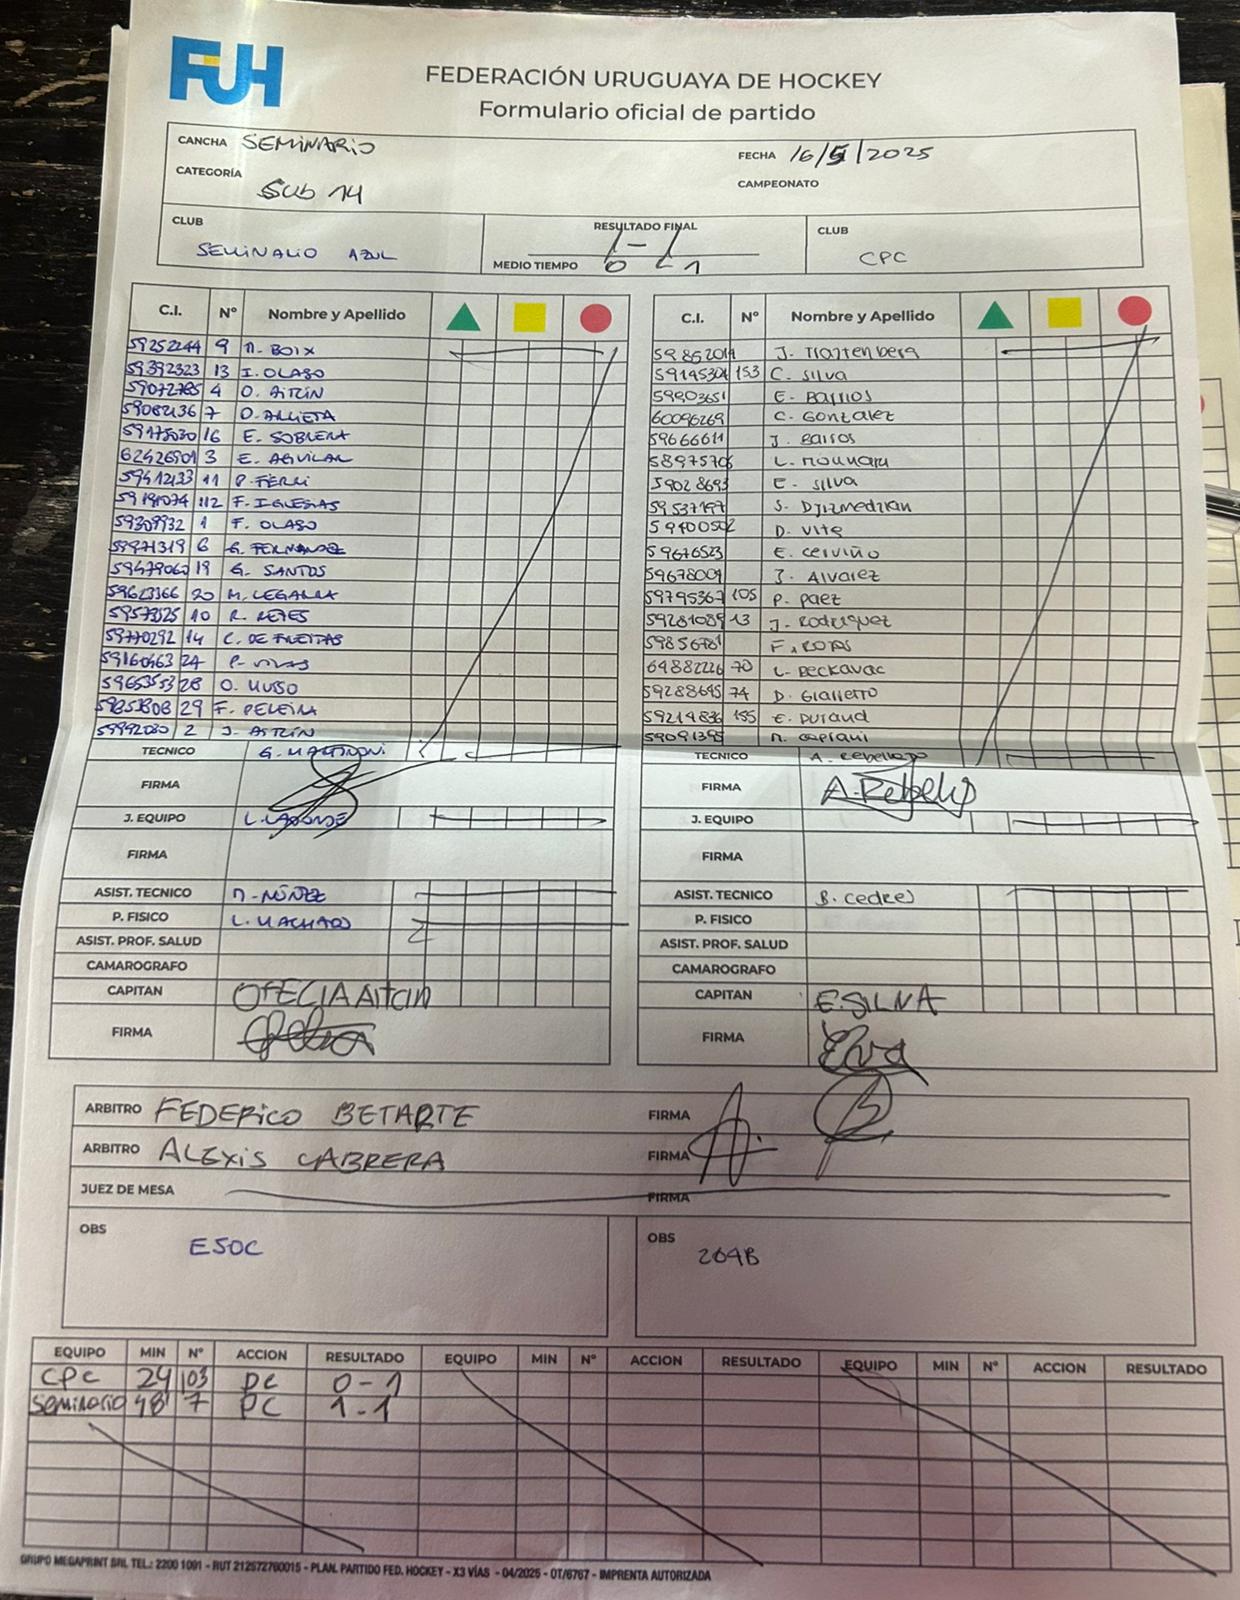 FUH
FEDERACIÓN URUGUAYA DE HOCKEY
Formulario oficial de partido
CANCHA SEMINARIO
FECHA 16/5/2025
CATEGORÍA SUB 14
CAMPEONATO
CLUB SEMINARIO AZUL
RESULTADO FINAL 1-1
MEDIO TIEMPO 0-1
CLUB CPC
C.I. Nº Nombre y Apellido
59252244 9 M. BOIX
59392323 13 I. OLASO
59072785 4 O. AITCIN
59082136 7 O. ARRIETA
59175030 16 E. SOBRERA
62426901 3 E. AGUILAR
59412133 11 P. FERRI
59191074 112 F. IGLESIAS
59309932 1 F. OLASO
59971319 6 G. FERNANDEZ
59479060 19 G. SANTOS
59623366 20 M. LEGARRA
59573525 10 R. REYES
59770292 14 C. DE FREITAS
59160463 27 P. VIVAS
59653553 28 O. MUSSO
29 F. PEREIRA
59992080 2 J. AITCIN
TECNICO G. MARTINONI
FIRMA
J. EQUIPO L. LABORDE
FIRMA
ASIST. TECNICO M. NÚÑEZ
P. FISICO L. MACHADO
ASIST. PROF. SALUD
CAMAROGRAFO
CAPITAN OFELIA Aitcin
FIRMA
C.I. Nº Nombre y Apellido
J. Trantenberg
59145304 153 C. Silva
59903651 E. Barrios
60096269 C. Gonzalez
59666611 J. Barros
58975706 L.
59028693 E. Silva
59537197 S. Djizmedzian
59400502 D. Vite
59676523 E. Cerviño
59678009 J. Alvarez
59795367 105 P. Paez
59281089 13 J. Rodriguez
59856781 F. ROJAS
64882226 70 L. Beckavac
59288645 74 D. Giannetto
59214836 155 E. Durand
59091395 M. Capriani
TECNICO A. Rebelledo
FIRMA A. Rebello
J. EQUIPO
FIRMA
ASIST. TECNICO B. Cedres
P. FISICO
ASIST. PROF. SALUD
CAMAROGRAFO
CAPITAN E. SILVA
FIRMA
ARBITRO FEDERICO BETARTE FIRMA
ARBITRO ALEXIS CABRERA FIRMA
JUEZ DE MESA FIRMA
OBS ESOC
OBS 264B
EQUIPO MIN Nº ACCION RESULTADO EQUIPO MIN Nº ACCION RESULTADO EQUIPO MIN Nº ACCION RESULTADO
CPC 24 103 PC 0-1
Seminario 48' 7 PC 1-1
GRUPO MEGAPRINT SRL TEL.: 2200 1091 - RUT 212572760015 - PLAN. PARTIDO FED. HOCKEY - X3 VÍAS - 04/2025 - OT/6767 - IMPRENTA AUTORIZADA